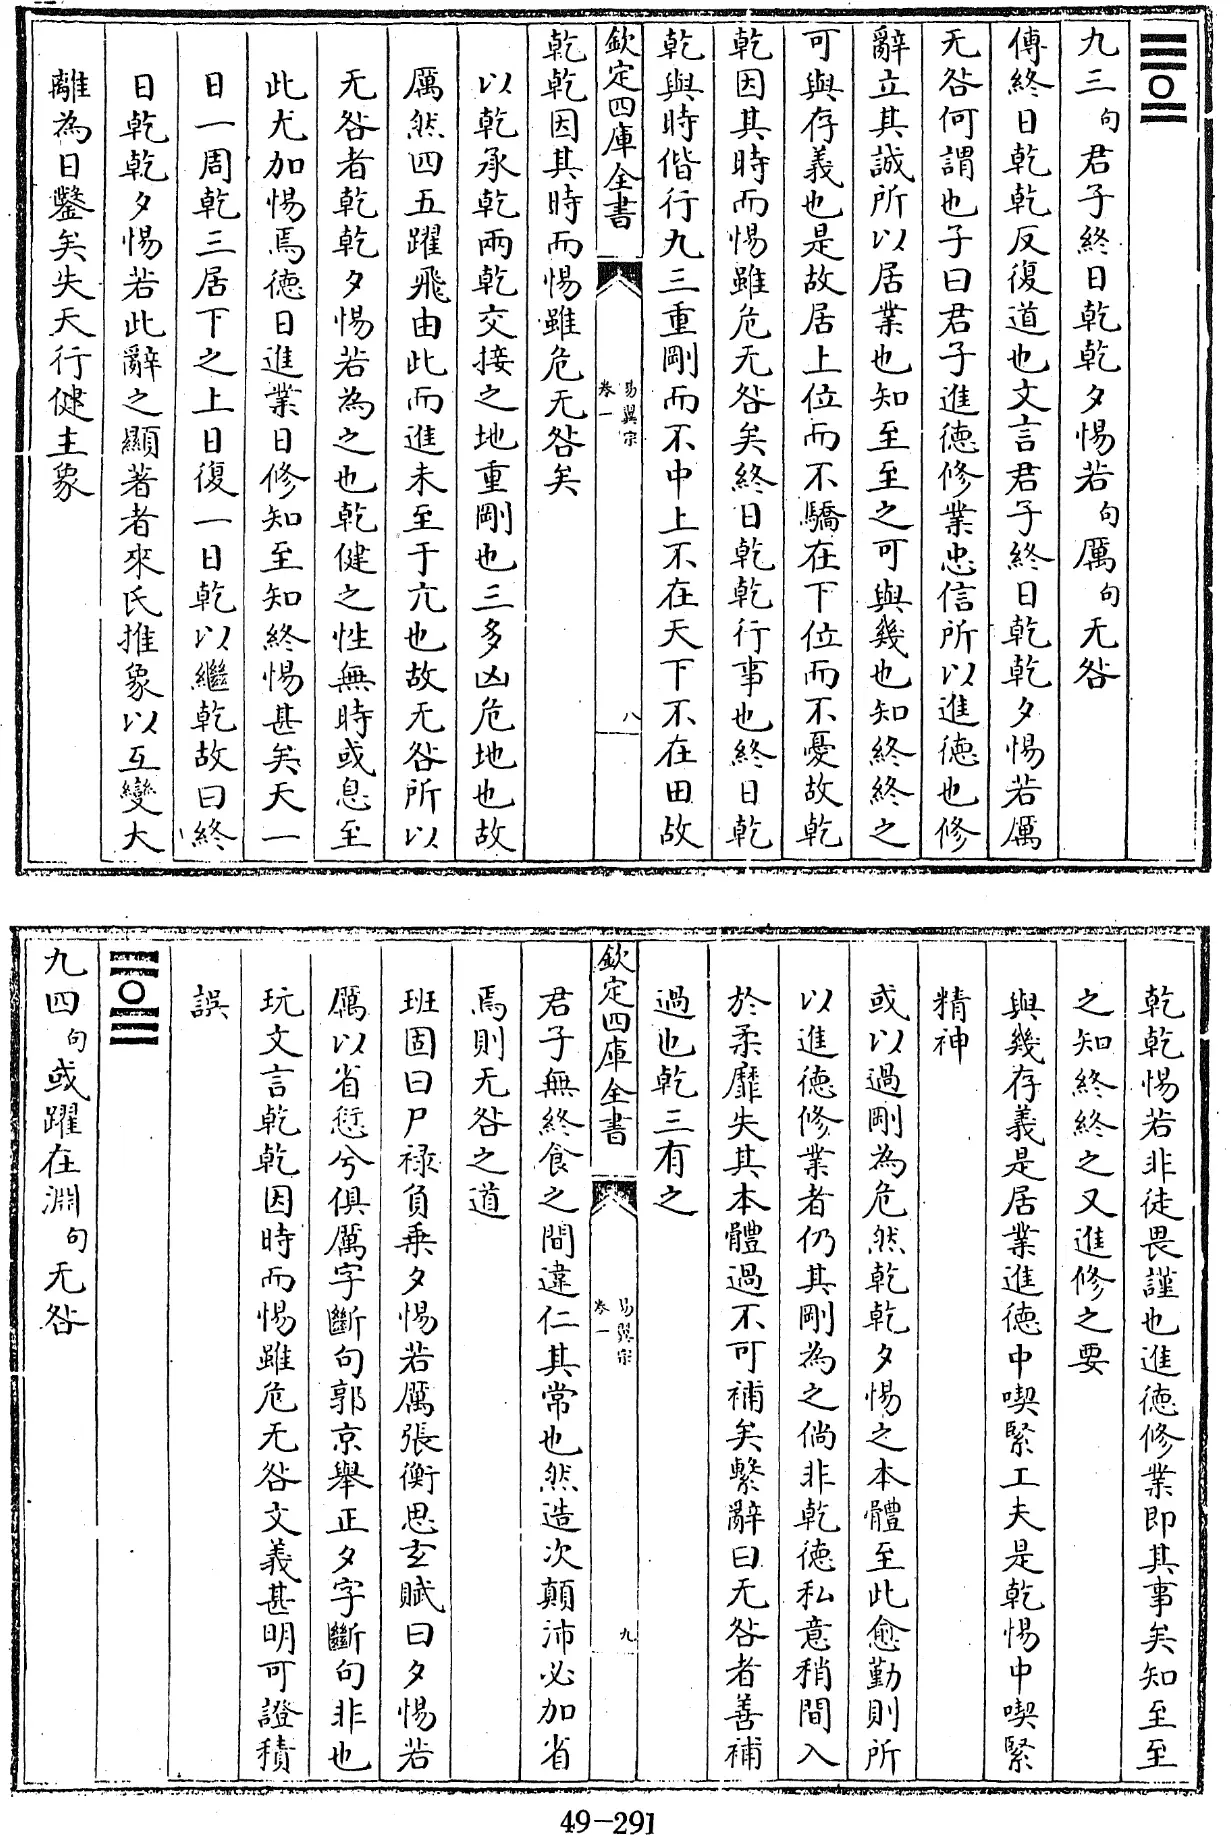 九三句君子終日乾乾夕惕若句厲句无咎
傳終日乾乾反復道也文言君子終日乾乾夕惕若厲
无咎何謂也子曰君子進德修業忠信所以進德也修
辭立其誠所以居業也知至至之可與幾也知終終之
可與存義也是故居上位而不驕在下位而不憂故乾
乾因其時而惕雖危无咎矣終日乾乾行事也終日乾
乾與時偕行九三重剛而不中上不在天下不在田故
欽定四庫全書
易翼宗
卷一
八
乾乾因其時而惕雖危无咎矣
以乾承乾兩乾交接之地重剛也三多凶危地也故
厲然四五躍飛由此而進未至于亢也故无咎所以
无咎者乾乾夕惕若為之也乾健之性無時或息至
此尤加惕焉德日進業日修知至知終惕甚矣天一
日一周乾三居下之上日復一日乾以繼乾故曰終
日乾乾夕惕若此辭之顯著者來氏推象以互變大
離為日鑿矣失天行健主象
乾乾惕若非徒畏謹也進德修業即其事矣知至至
之知終終之又進修之要
與幾存義是居業進德中喫緊工夫是乾惕中喫緊
精神
或以過剛為危然乾乾夕惕之本體至此愈勤則所
以進德修業者仍其剛為之倘非乾德私意稍間入
於柔靡失其本體過不可補矣繫辭曰无咎者善補
過也乾三有之
欽定四庫全書
易翼宗
卷一
九
君子無終食之間違仁其常也然造次顛沛必加省
焉則无咎之道
班固曰尸祿負乘夕惕若厲張衡思玄賦曰夕惕若
厲以省愆兮俱厲字斷句郭京舉正夕字斷句非也
玩文言乾乾因時而惕雖危无咎文義甚明可證積
誤
九四句或躍在淵句无咎
49-291